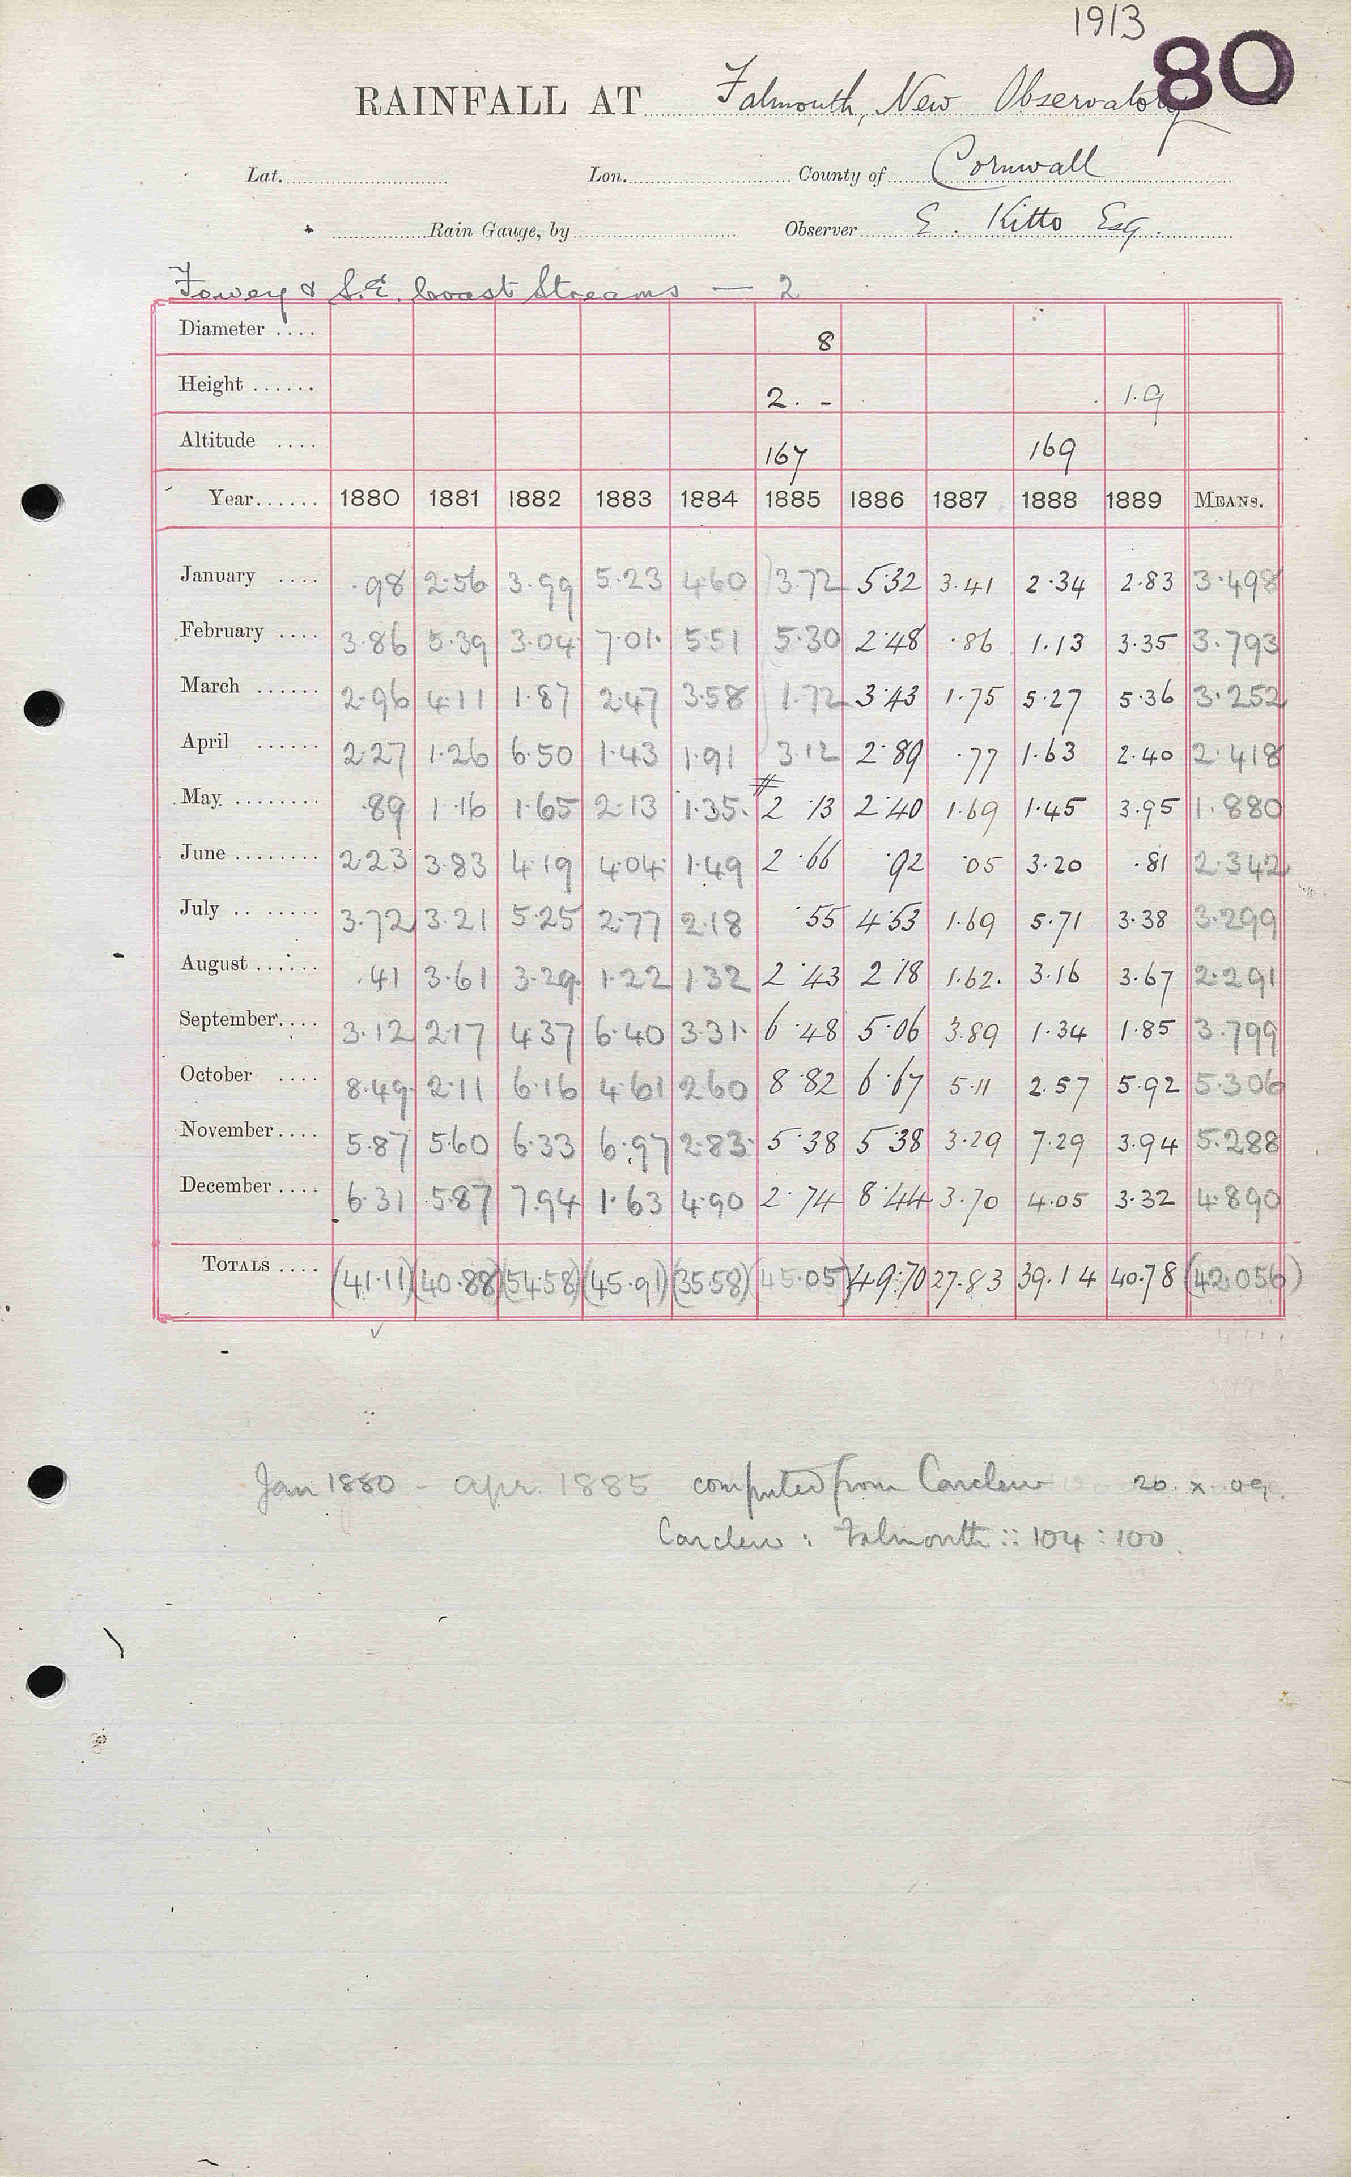 1913
80
RAINFALL AT Falmouth, New Observatory
Lat. Lon. County of Cornwall
Rain Gauge, by Observer E. Kitto Esq.
Fowey & S.E. Coast Streams — 2
Diameter .... 8
Height ...... 2. - 1.9
Altitude .... 167 169
Year...... 1880 1881 1882 1883 1884 1885 1886 1887 1888 1889 MEANS.
January .... .98 2.56 3.99 5.23 4.60 3.72 5.32 3.41 2.34 2.83 3.498
February .... 3.86 5.39 3.04 7.01 5.51 5.30 2.48 .86 1.13 3.35 3.793
March ...... 2.96 4.11 1.87 2.47 3.58 1.72 3.43 1.75 5.27 5.36 3.252
April ...... 2.27 1.26 6.50 1.43 1.91 3.12 2.89 .77 1.63 2.40 2.418
May ........ .89 1.16 1.65 2.13 1.35 2.13 2.40 1.69 1.45 3.95 1.880
June ........ 2.23 3.83 4.19 4.04 1.49 2.66 .92 .05 3.20 .81 2.342
July .. ..... 3.72 3.21 5.25 2.77 2.18 .55 4.53 1.69 5.71 3.38 3.299
August ...... .41 3.61 3.29 1.22 1.32 2.43 2.18 1.62 3.16 3.67 2.291
September.... 3.12 2.17 4.37 6.40 3.31 6.48 5.06 3.89 1.34 1.85 3.799
October .... 8.49 2.11 6.16 4.61 2.60 8.82 6.67 5.11 2.57 5.92 5.306
November.... 5.87 5.60 6.33 6.97 2.83 5.38 5.38 3.29 7.29 3.94 5.288
December.... 6.31 5.87 7.94 1.63 4.90 2.74 8.44 3.70 4.05 3.32 4.890
TOTALS .... (41.11) (40.88) (54.58) (45.91) (35.58) (45.05) 49.70 27.83 39.14 40.78 (42.056)
Jan 1880 - Apr. 1885 computed from Carclew 20. x 09.
Carclew : Falmouth :: 104 : 100.